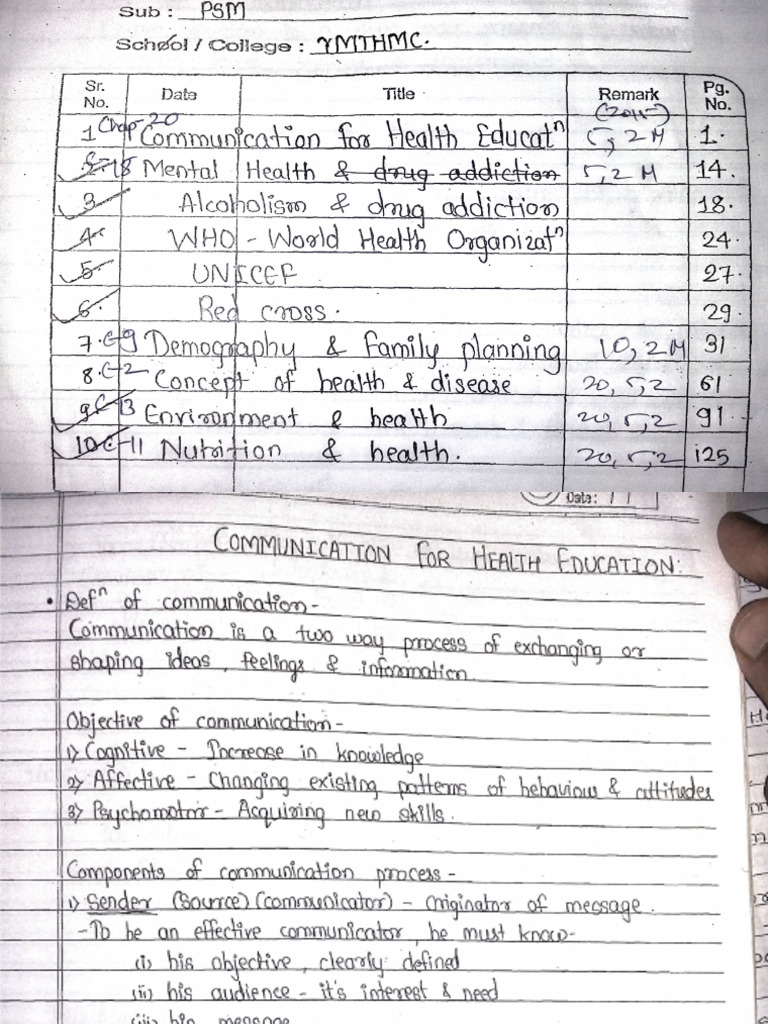 Sub : PSM
School / College : YMTHMC.
Sr. No. Date Title Remark Pg. No.
(2015)
1 Chap-20 Communication for Health Educatⁿ 5, 2 M 1.
18 Mental Health & drug addiction 5, 2 M 14.
3. Alcoholism & drug addiction 18.
4. WHO - World Health Organizatⁿ 24.
5. UNICEF 27.
6. Red cross. 29.
7. C-9 Demography & family planning 10, 2 M 31
8. C-2 Concept of health & disease 20, 5, 2 61
9 C-13 Environment & health 20, 5, 2 91.
10 C-11 Nutrition & health. 20, 5, 2 125
Date : / /
COMMUNICATION FOR HEALTH EDUCATION:
• Defⁿ of communication -
Communication is a two way process of exchanging or
shaping ideas, feelings & information
Objective of communication -
1) Cognitive - Increase in knowledge
2) Affective - Changing existing patterns of behaviour & attitudes
3) Psychomotor - Acquiring new skills.
Components of communication process -
1) Sender (Source) (communicator) - Originator of message.
- To be an effective communicator, he must know -
(i) his objective, clearly defined
(ii) his audience - it's interest & need
(iii) his message